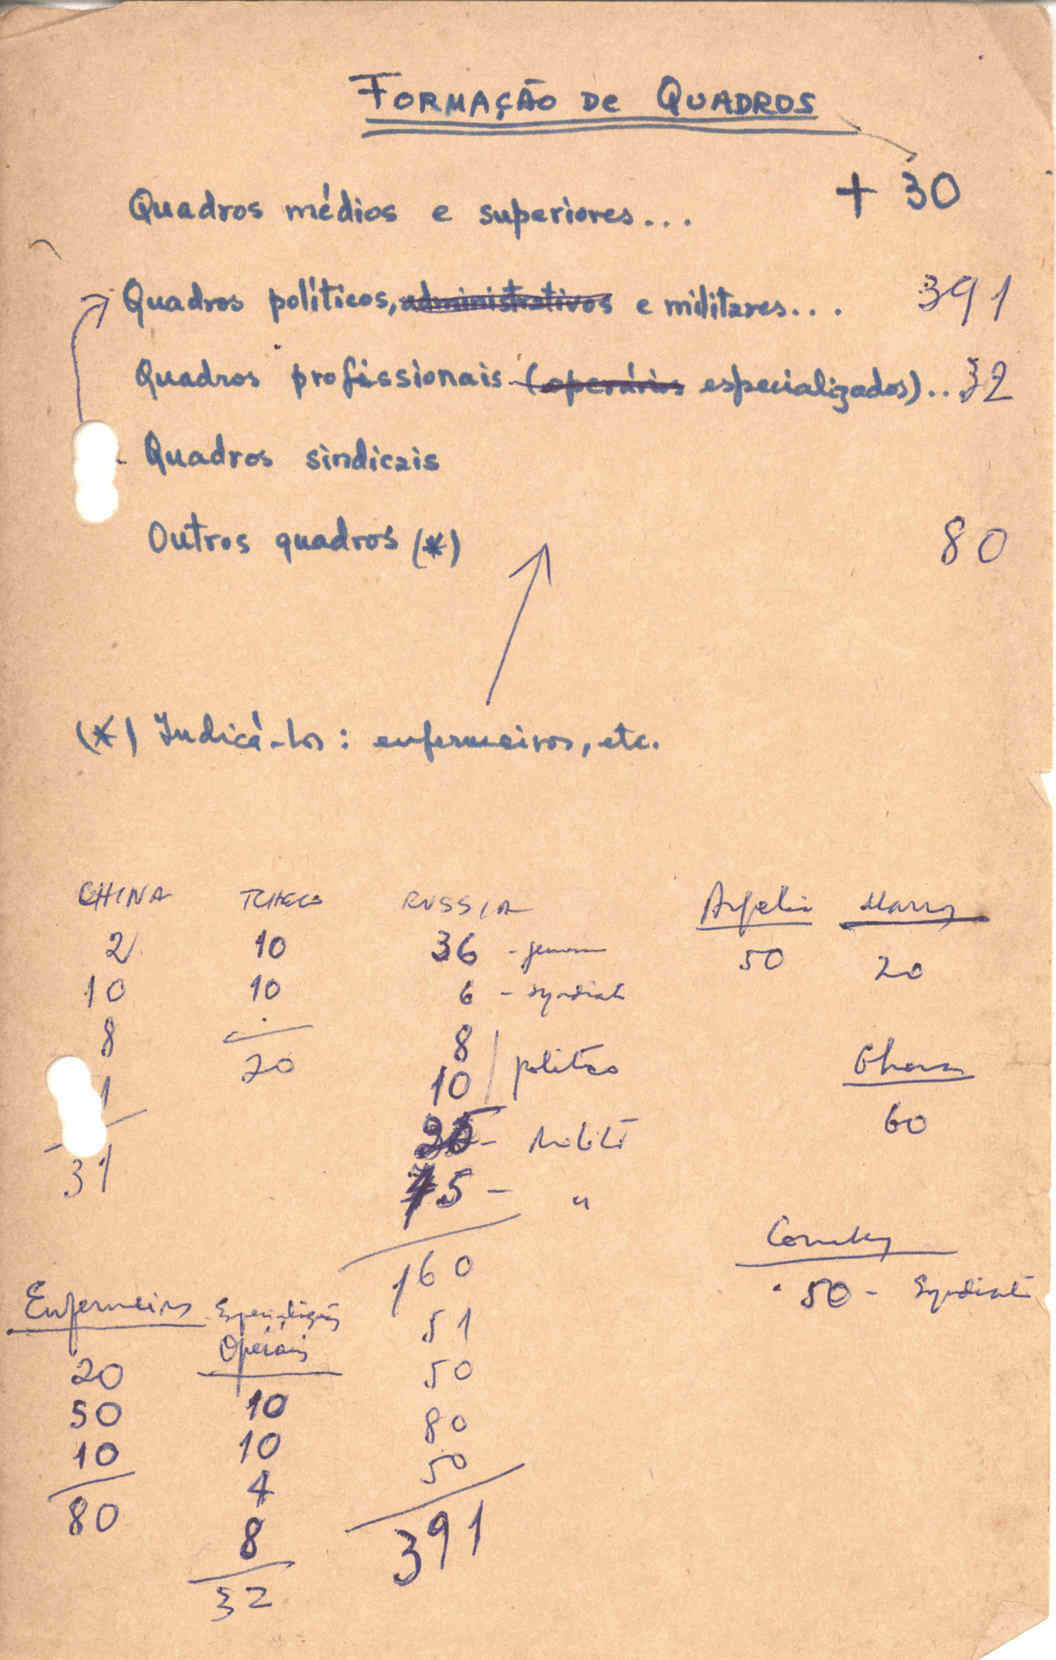 FORMAÇÃO DE QUADROS
+ 30
Quadros médios e superiores...
Quadros políticos, administrativos e militares... 391
Quadros profissionais (operários especializados)... 32
Quadros sindicais
Outros quadros (*) 80
(*) Indicá-los: enfermeiros, etc.
CHINA TCHECO RUSSIA
2 10 36
10 10 6 - syndicat
8 20 8
1 10 politico
31 25 -
75 - "
160
51
50
80
50
391
50 20
Ghana
60
50 - Syndicat
Enfermeiros
20
50
10
80
10
10
4
8
32